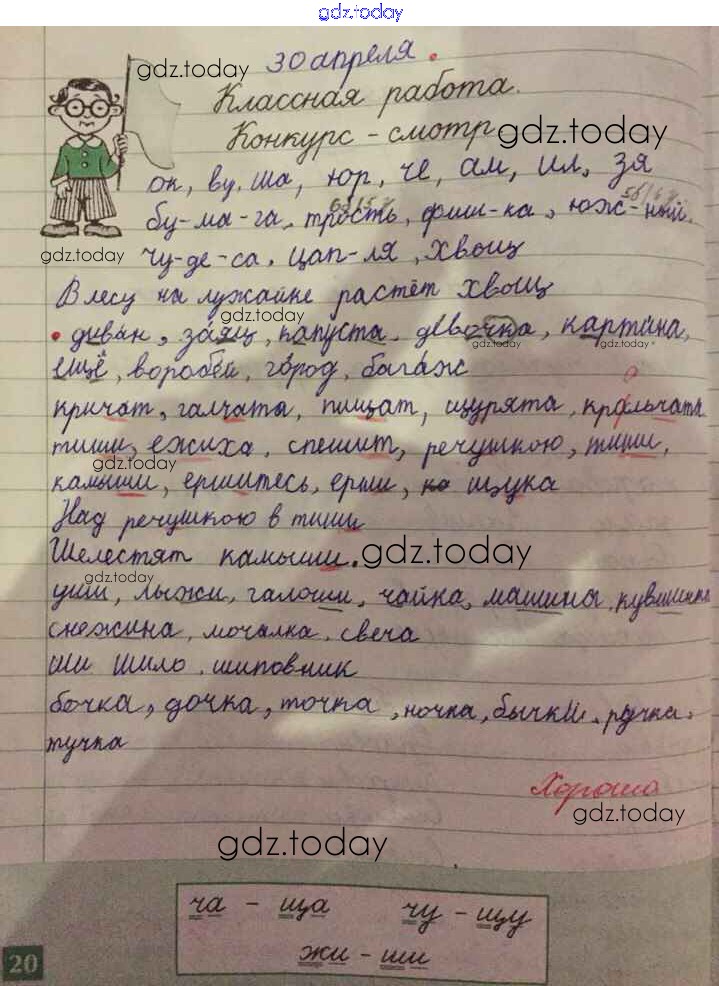 gdz.today
30 апреля.
gdz.today
Классная работа.
Конкурс - смотр gdz.today
ок, ву, ша, юр, че, ам, ил, зя
бу-ма-га, трость, фиш-ка, юж-ный.
gdz.today чу-де-са, цап-ля, хвощ
В лесу на лужайке растёт хвощ
gdz.today
диван, заяц, капуста, девочка, картина,
gdz.today gdz.today
ещё, воробей, город, багаж
кричат, галчата, пищат, щурята, крольчата
тиши, ежиха, спешит, речушкою, тиши,
gdz.today
камыши, ершитесь, ерши, щука
Над речушкою в тиши
Шелестят камыши. gdz.today
gdz.today
уши, лыжи, галоши, чайка, машины, кувшинка
снежина, мочалка, свеча
ши шило, шиповник
бочка, дочка, точка, ночка, бычки, ручка,
тучка
Хорошо
gdz.today
gdz.today
ча - ща чу - щу
жи - ши
20